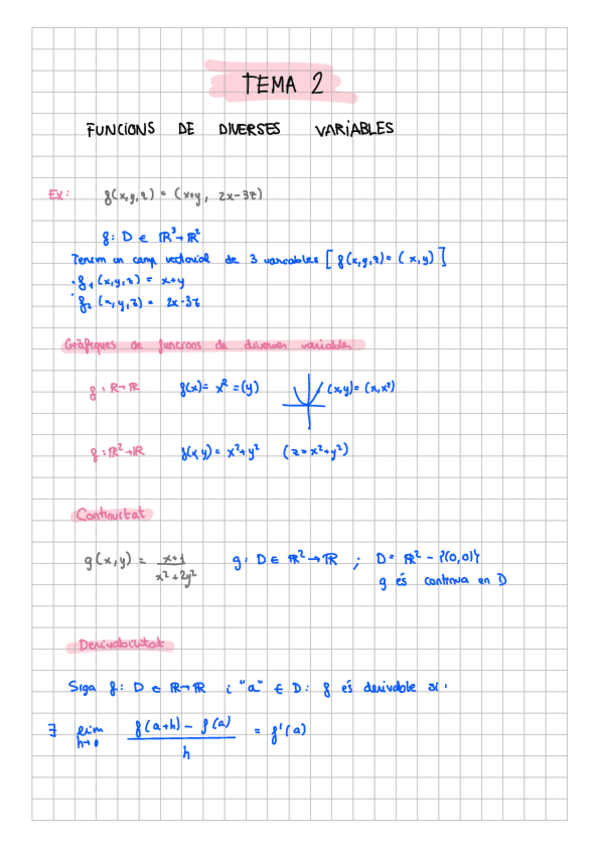 TEMA 2
FUNCIONS DE DIVERSES VARIABLES
Ex: f(x,y,z) = (x+y, 2x-3z)
f: D ∈ ℝ³→ℝ²
Tenim un camp vectorial de 3 variables [f(x,y,z) = (x,y)]
· f₁(x,y,z) = x+y
· f₂(x,y,z) = 2x-3z
Gràfiques de funcions de diverses variables
f: ℝ→ℝ f(x) = x² = (y) (x,y) = (x,x²)
f: ℝ²→ℝ f(x,y) = x²+y² (z = x²+y²)
Continuïtat
g(x,y) = x+1 / x²+2y² g: D ∈ ℝ²→ℝ ; D = ℝ² - {(0,0)}
g és contínua en D
Derivabilitat
Siga f: D ∈ ℝ→ℝ i "a" ∈ D: f és derivable si:
∃ lim h→0 f(a+h) - f(a) / h = f'(a)